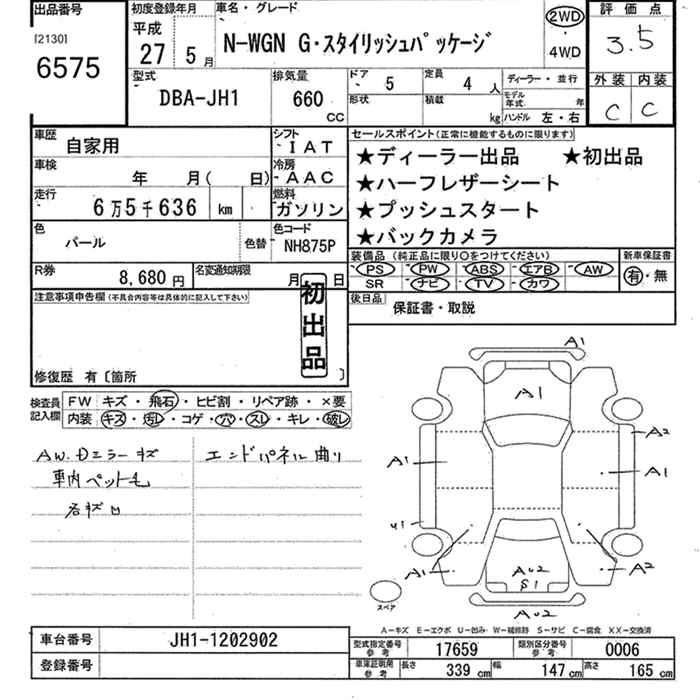 出品番号
[2130]
6575
初度登録年月
平成
27 5月
車名・グレード
N-WGN G・スタイリッシュパッケージ
2WD
・
4WD
評価点
3.5
外装 内装
C C
型式
DBA-JH1
排気量
660
CC
ドア 5
形状
定員 4 人
積載 kg
ディーラー・並行
モデル年式 年
ハンドル 左・右
車歴 自家用
シフト
IAT
車検 年 月( 日)
冷房
AAC
走行 6万5千636 km
燃料
ガソリン
色 パール 色替
色コード
NH875P
R券 8,680円
名変通知期限 月 日
セールスポイント(正常に機能するものに限ります)
★ディーラー出品 ★初出品
★ハーフレザーシート
★プッシュスタート
★バックカメラ
装備品(純正品に限り○をつけてください)
PS PW ABS エアB AW
SR ナビ TV カワ
新車保証書
有・無
後日品 保証書・取説
注意事項申告欄(不具合内容等は具体的に記入して下さい)
初出品
修復歴 有〔箇所 〕
検査員記入欄
FW キズ・飛石・ヒビ割・リペア跡・×要
内装 キズ・汚レ・コゲ・穴・スレ・キレ・破レ
AW.Dミラーキズ
車内ペット毛
エンドパネル曲り
A1
A1
A2
A1
A1
U1
A1
A2
AU2
S1
AU2
スペア
A-キズ E-エクボ U-凹み W-補修跡 S-サビ C-腐食 XX-交換済
車台番号 JH1-1202902
登録番号
型式指定番号参考 17659
類別区分番号参考 0006
車庫証明用参考 長さ 339cm 幅 147cm 高さ 165cm